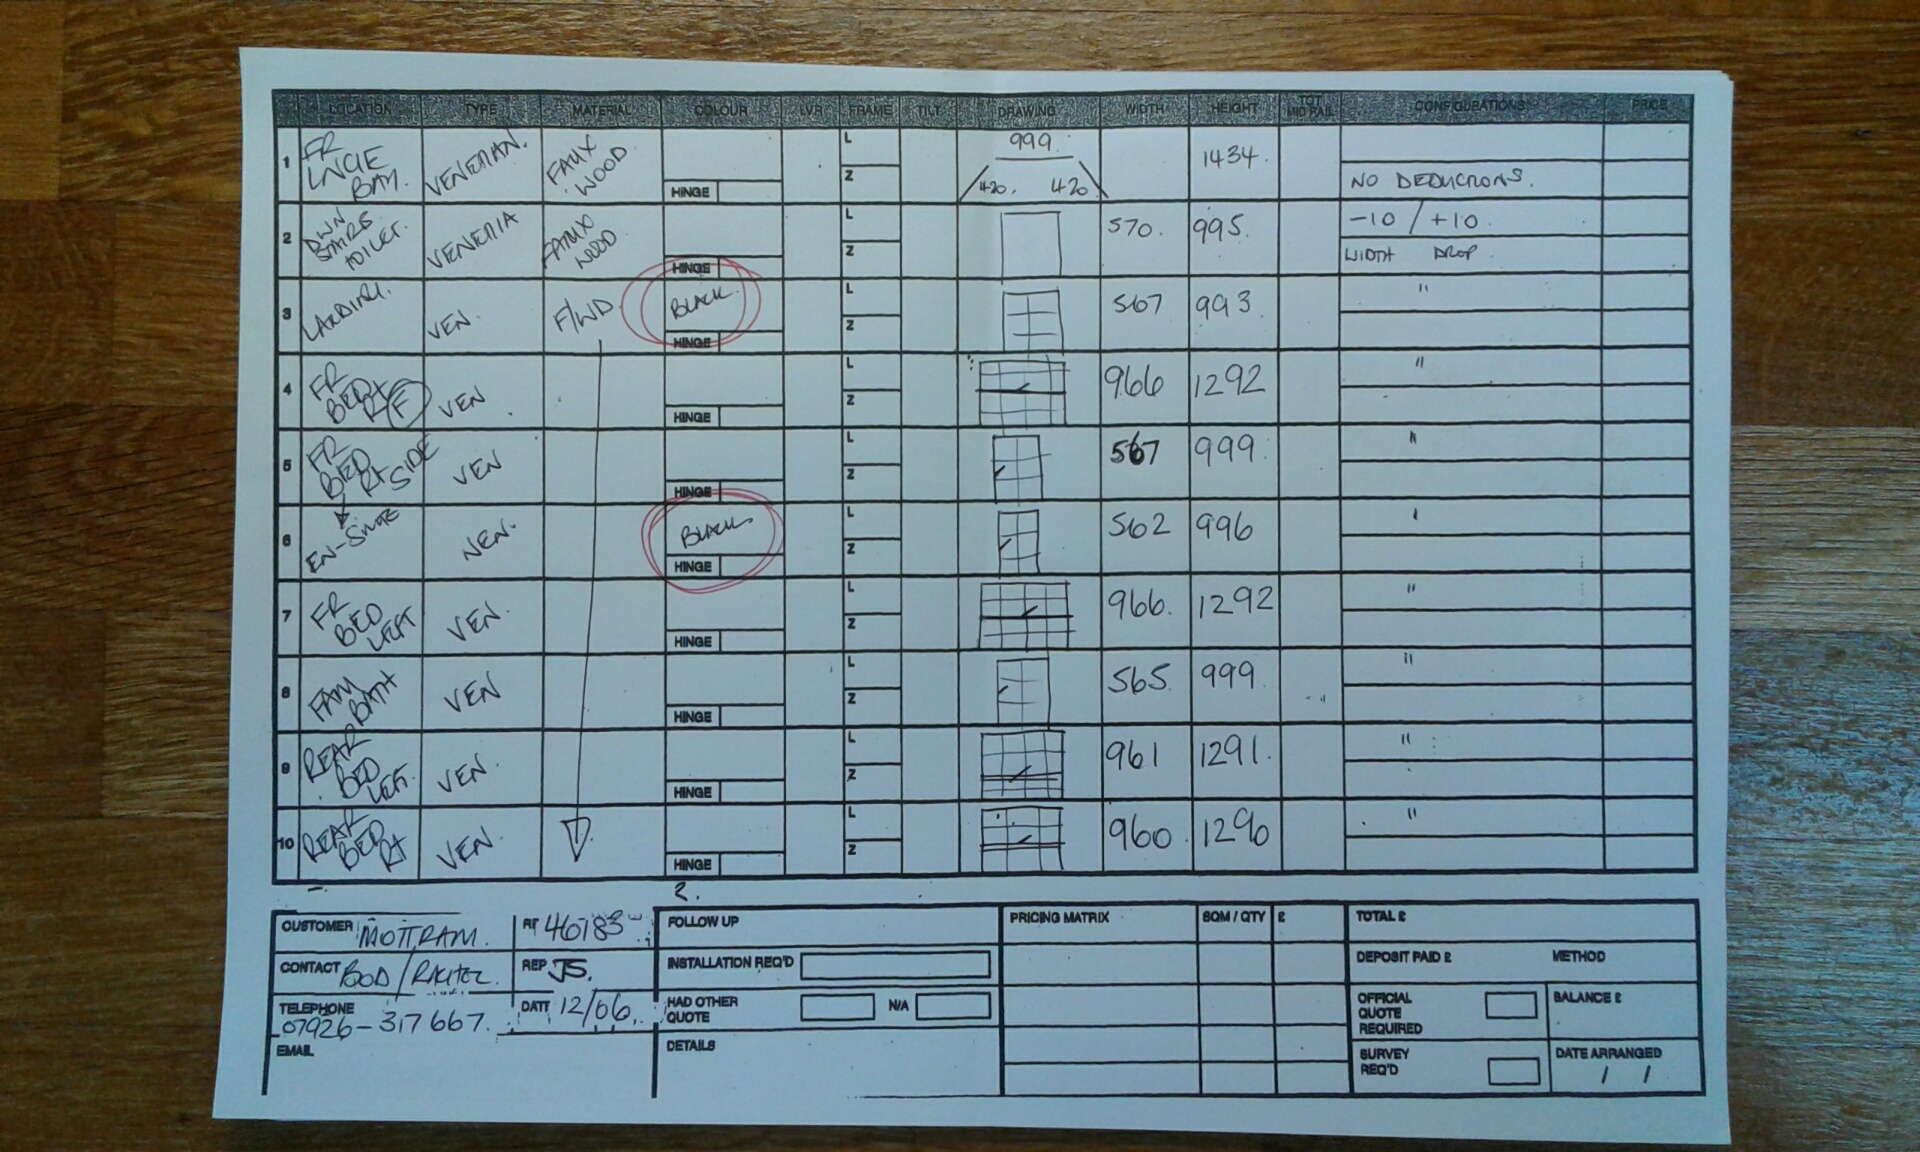 LOCATION TYPE MATERIAL COLOUR LVR FRAME TILT DRAWING WIDTH HEIGHT TOT MID RAIL CONFIGURATIONS PRICE
1 FR LNGE BAY. VENETIAN. FAUX WOOD HINGE L Z 999. 420. 420 1434. NO DEDUCTIONS.
2 DWN STAIRS TOILET. VENETIA FAUX WOOD HINGE L Z 570. 995. -10 / +10
WIDTH DROP
3 LANDING. VEN. F/WD. BLACK. HINGE L Z 567 993 "
4 FR BED RT F VEN HINGE L Z 966 1292 "
5 FR BED RT SIDE VEN HINGE L Z 567 999 "
6 EN-SUITE VEN. BLACK HINGE L Z 562 996
7 FR BED LEFT VEN. HINGE L Z 966. 1292 "
8 FAM BATH VEN HINGE L Z 565 999 "
9 REAR BED LEFT. VEN. HINGE L Z 961 1291. "
10 REAR BED RT VEN. HINGE L Z 960 1290 "
2.
CUSTOMER MOTTRAM. 46183
CONTACT BOD / RACHEL REP JS.
TELEPHONE 07926-317667. DATE 12/06.
EMAIL
FOLLOW UP
INSTALLATION REQ'D
HAD OTHER QUOTE N/A
DETAILS
PRICING MATRIX SQM / QTY £
TOTAL £
DEPOSIT PAID £ METHOD
OFFICIAL QUOTE REQUIRED BALANCE £
SURVEY REQ'D DATE ARRANGED
/ /